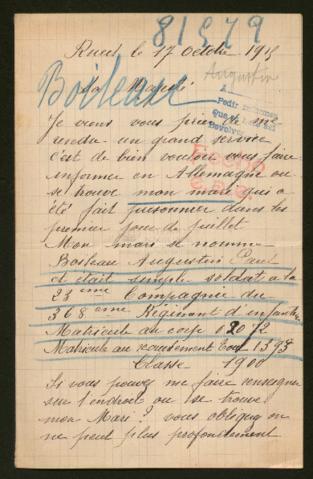 81579
Rueil le 17 Octobre 1915
Augustin
Boileau
A Madrid
A
Pedir informes
Devolver
Je viens vous prier de me
rendre un grand service
c'est de bien vouloir vous faire
informer en Allemagne ou
se trouve mon mari qui a
été fait prisonnier dans les
premier jour de juillet
Mon mari se nomme
Boileau Augustin Paul
et était simple soldat a la
23 eme Compagnie du
368 eme Régiment d'infanterie
Matricule au corps 02072
Matricule au recrutement 1395
Classe 1900
Si vous pouvez me faire renseigner
sur l'endroit ou se trouve
mon Mari? vous obliger on
ne peut plus profondement